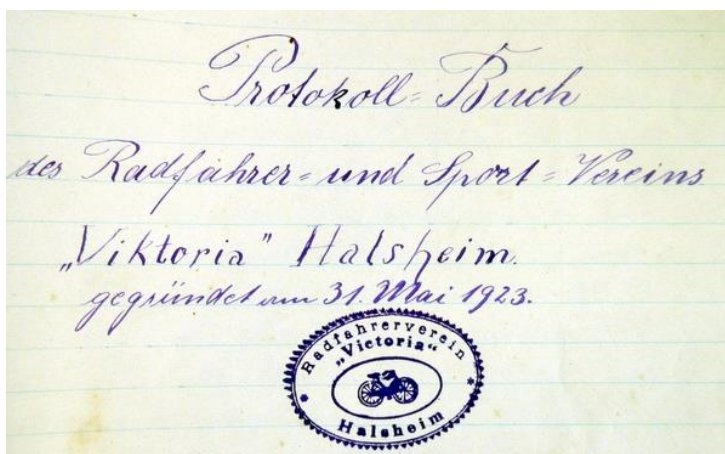 Protokoll= Buch
des Radfahrer= und Sport= Vereins
„Viktoria" Halsheim.
gegründet am 31. Mai 1923.
Radfahrerverein
„Victoria“
Halsheim